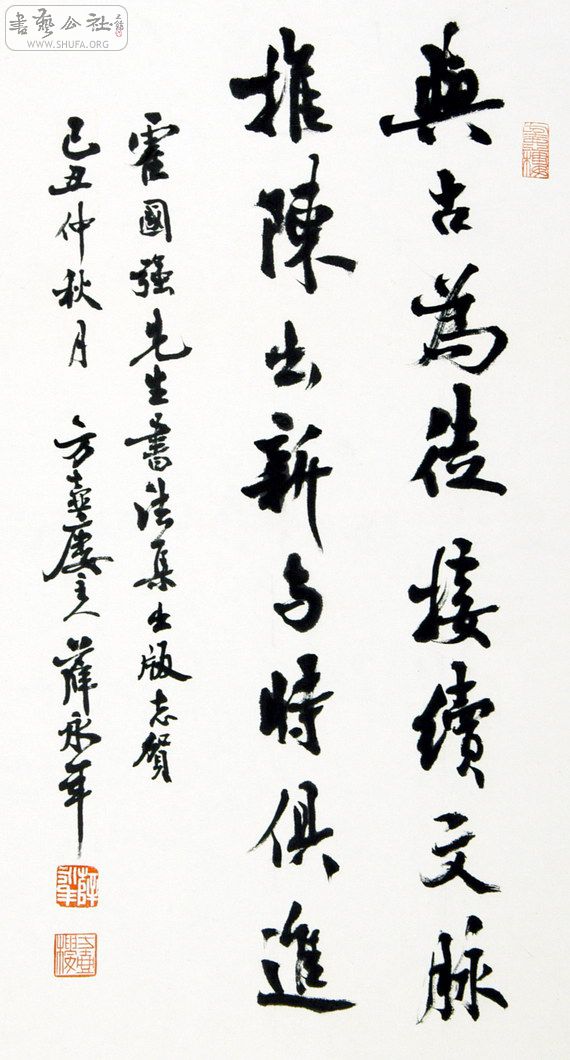 書藝公社
WWW.SHUFA.ORG
與古為徒接續文脉
推陳出新与時俱進
霍國强先生書法集出版志賀
己丑仲秋月 方壺廔主人 薛永年
薛永年